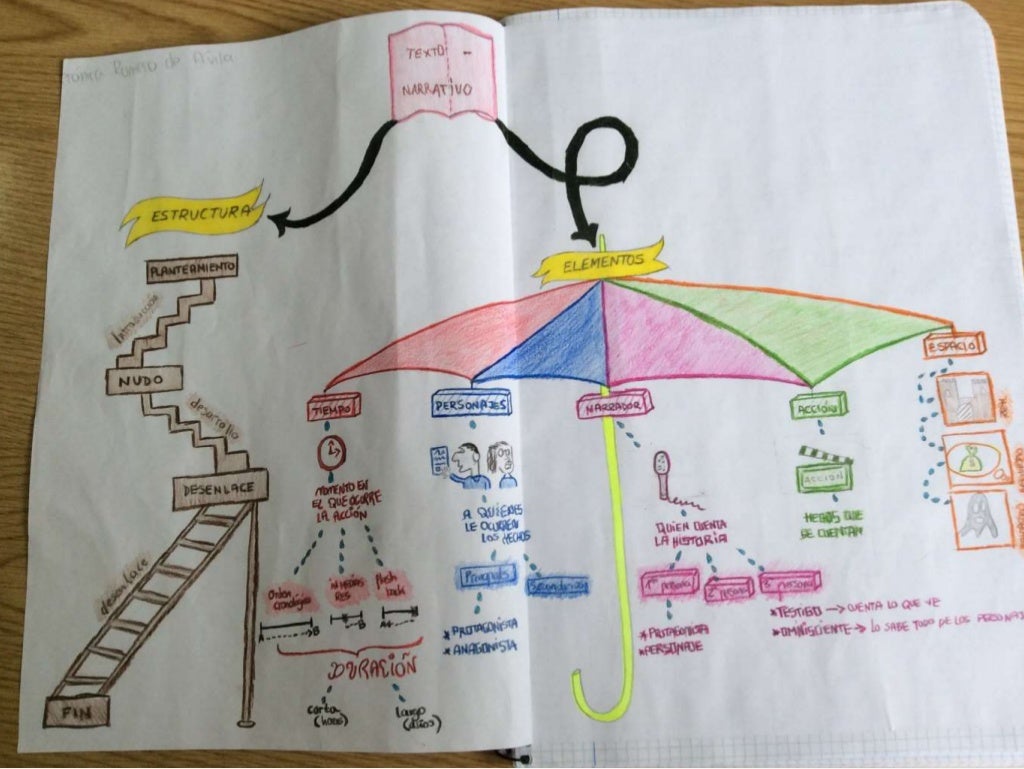 Romero de Ávila
TEXTO
NARRATIVO
ESTRUCTURA
PLANTEAMIENTO
Introducción
NUDO
desarrollo
DESENLACE
desenlace
FIN
ELEMENTOS
TIEMPO
MOMENTO EN
EL QUE OCURRE
LA ACCIÓN
Orden
cronológico
IN MEDIAS
RES
Flash
back
A B
DURACIÓN
corta
(horas)
largo
(años)
PERSONAJES
A QUIENES
LE OCURREN
LOS HECHOS
Principals
Secundarios
* PROTAGONISTA
* ANAGONISTA
NARRADOR
QUIEN CUENTA
LA HISTORIA
1ª persona
2ª persona
3ª persona
* PROTAGONISTA
* PERSONAJE
* TESTIGO → CUENTA LO QUE VE
* OMNISCIENTE → LO SABE TODO DE LOS
ACCIÓN
ACCIÓN
HECHOS QUE
SE CUENTAN
ESPACIO
REAL